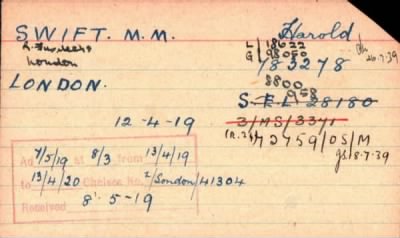 SWIFT. M.M. Harold
R. Fusiliers L/18622
London G/98050 26.7.39
783278
LONDON. 8800
958
S.F.L 28180
12-4-19 3/MS/3371
72759/OS/M
18.7.39
Ad 7/5/19 at 8/3 from 13/4/19
to 13/4/20 Chelsea No. 2/London/41304
Received 8. 5-19